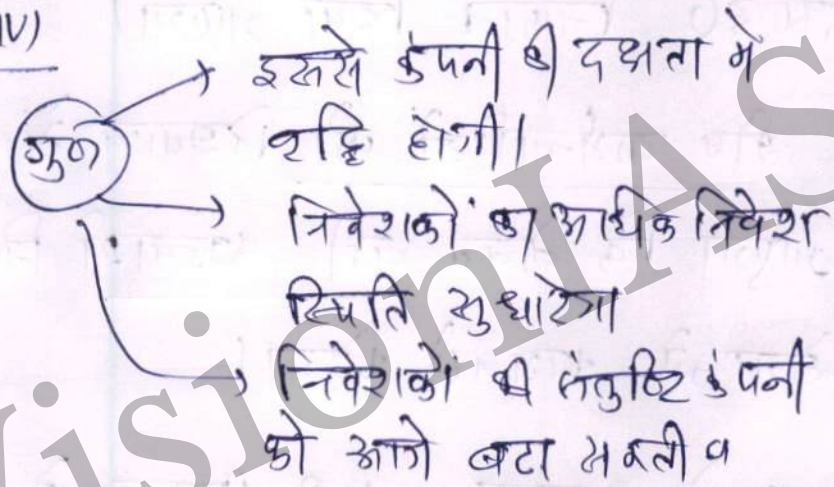 IV)
गुण
इससे कंपनी की दक्षता में
वृद्धि होगी।
निवेशकों का अधिक निवेश
स्थिति सुधारेगा
निवेशकों की संतुष्टि कंपनी
को आगे बढा सकती व
VisionIAS